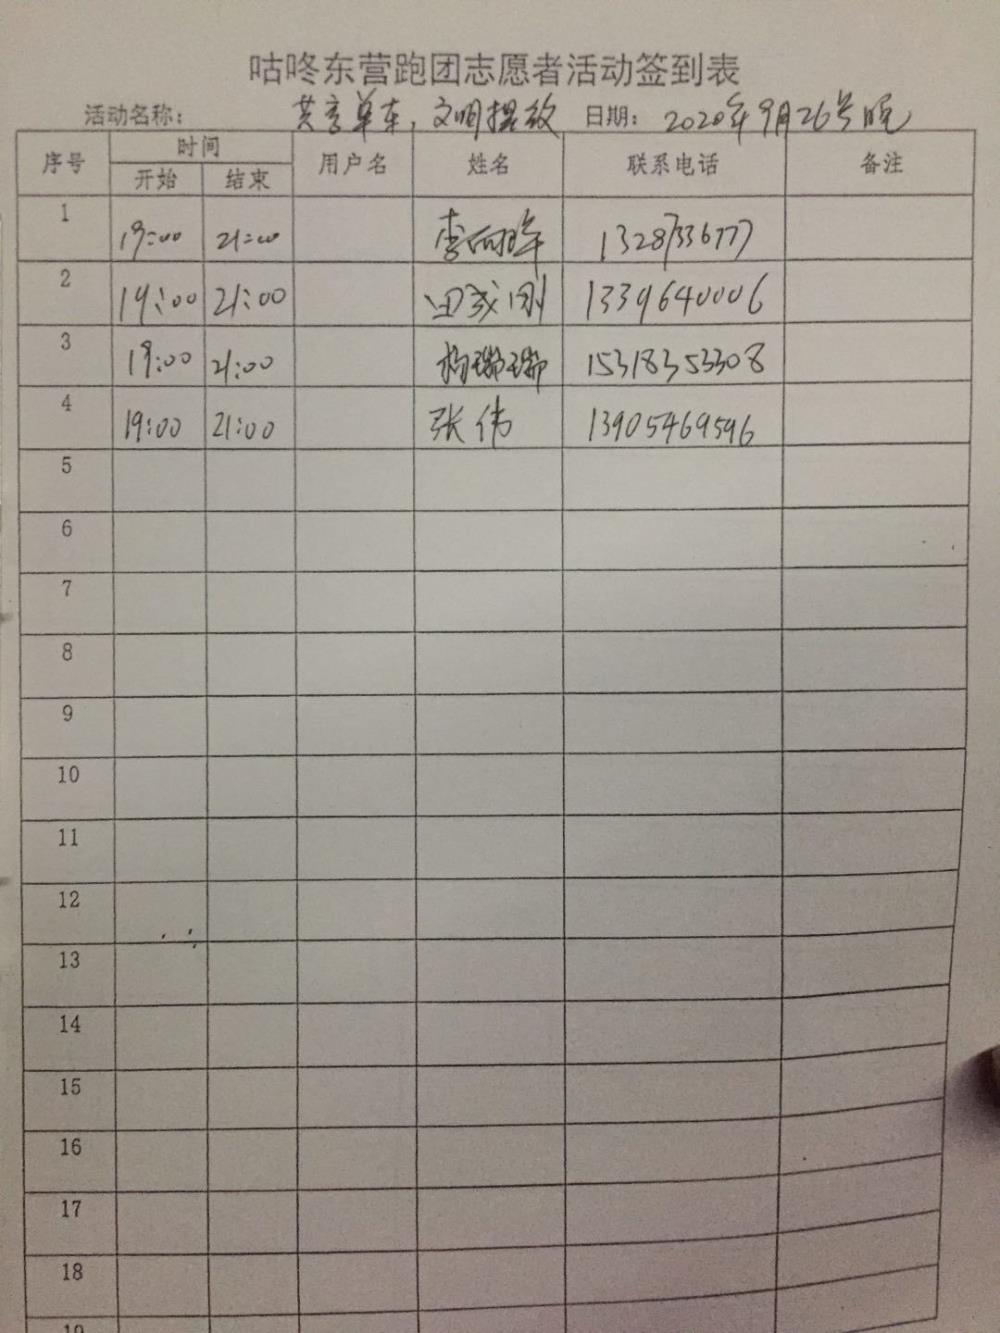 咕咚东营跑团志愿者活动签到表
活动名称: 共享单车，文明摆放 日期: 2020年9月26号晚
序号 时间 用户名 姓名 联系电话 备注
开始 结束
1 19:00 21:00 李 13287336777
2 19:00 21:00 田成刚 13396640006
3 19:00 21:00 杨瑞瑞 15318353308
4 19:00 21:00 张伟 13905469596
5
6
7
8
9
10
11
12
13
14
15
16
17
18
19